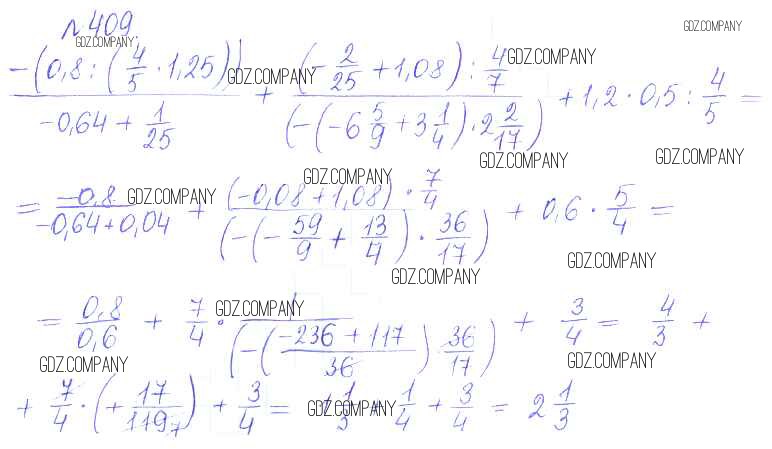 №409. GDZ.COMPANY GDZ.COMPANY
-(0,8 : (4/5 · 1,25)) / (-0,64 + 1/25) + (-2/25 + 1,08) : 4/7 / (-(-6 5/9 + 3 1/4) · 2 2/17) + 1,2 · 0,5 : 4/5 =
GDZ.COMPANY GDZ.COMPANY GDZ.COMPANY GDZ.COMPANY
= -0,8 / (-0,64 + 0,04) + (-0,08 + 1,08) · 7/4 / (-(-59/9 + 13/4) · 36/17) + 0,6 · 5/4 =
GDZ.COMPANY GDZ.COMPANY GDZ.COMPANY GDZ.COMPANY
= 0,8/0,6 + 7/4 · 1 / (-((-236 + 117)/36) · 36/17) + 3/4 = 4/3 +
GDZ.COMPANY GDZ.COMPANY GDZ.COMPANY
+ 7/4 · (+ 17/119 7) + 3/4 = 1 1/3 + 1/4 + 3/4 = 2 1/3
GDZ.COMPANY